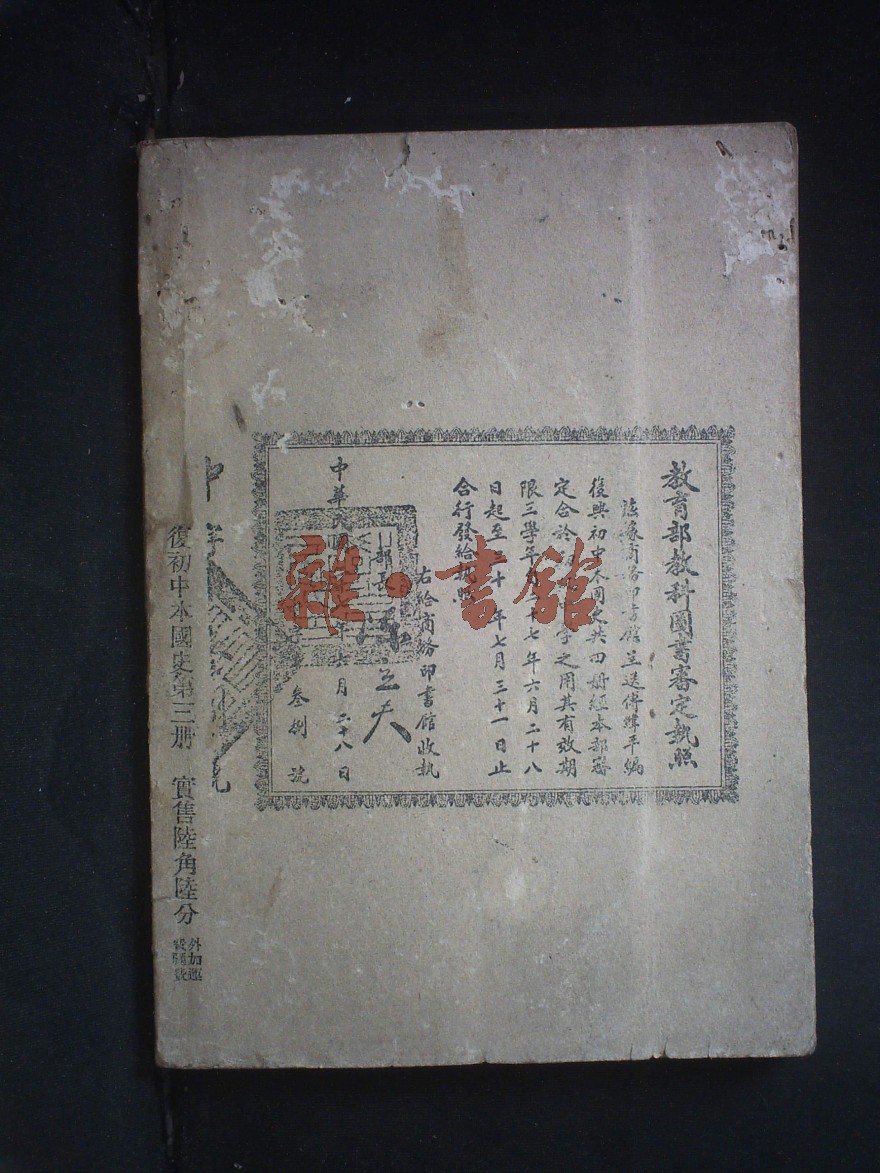 教育部教科圖書審定執照
茲據商務印書館呈送傅緯平編
復興初中本國史共四册經本部審
定合於 之用其有效期
限三學年自二十七年六月二十八
日起至三十 年七月三十一日止
合行發給執照
右給商務印書館收執
部長 陳立夫
中華民國 年六月二十八日
叁捌號
中
復初中本國史第三册 實售陸角陸分
外加運
雜·書館